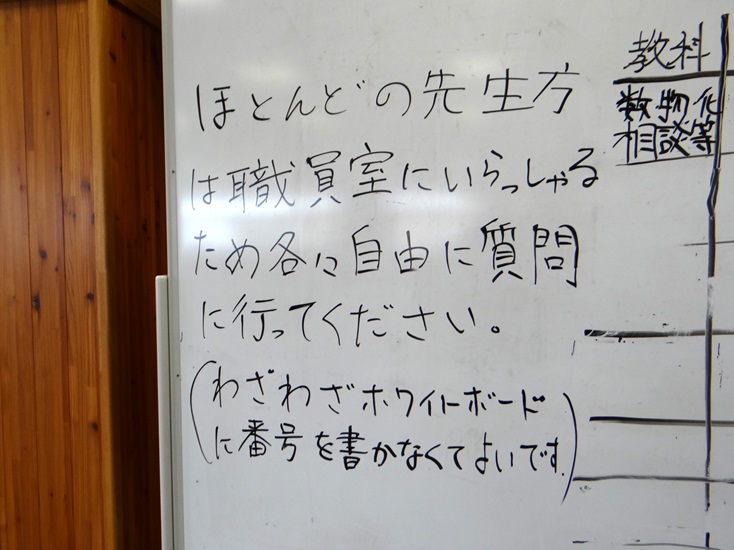 ほとんどの先生方
は職員室にいらっしゃる
ため各々自由に質問
に行ってください。
(わざわざホワイトボード
に番号を書かなくてよいです.)
教科
数物化
相談等